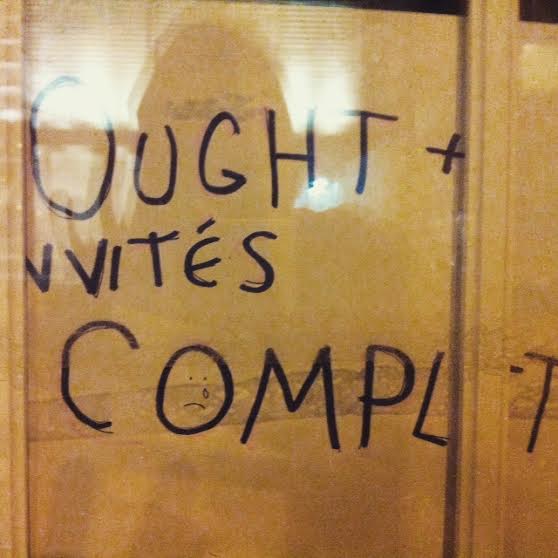 OUGHT +
NVITÉS
COMPLT